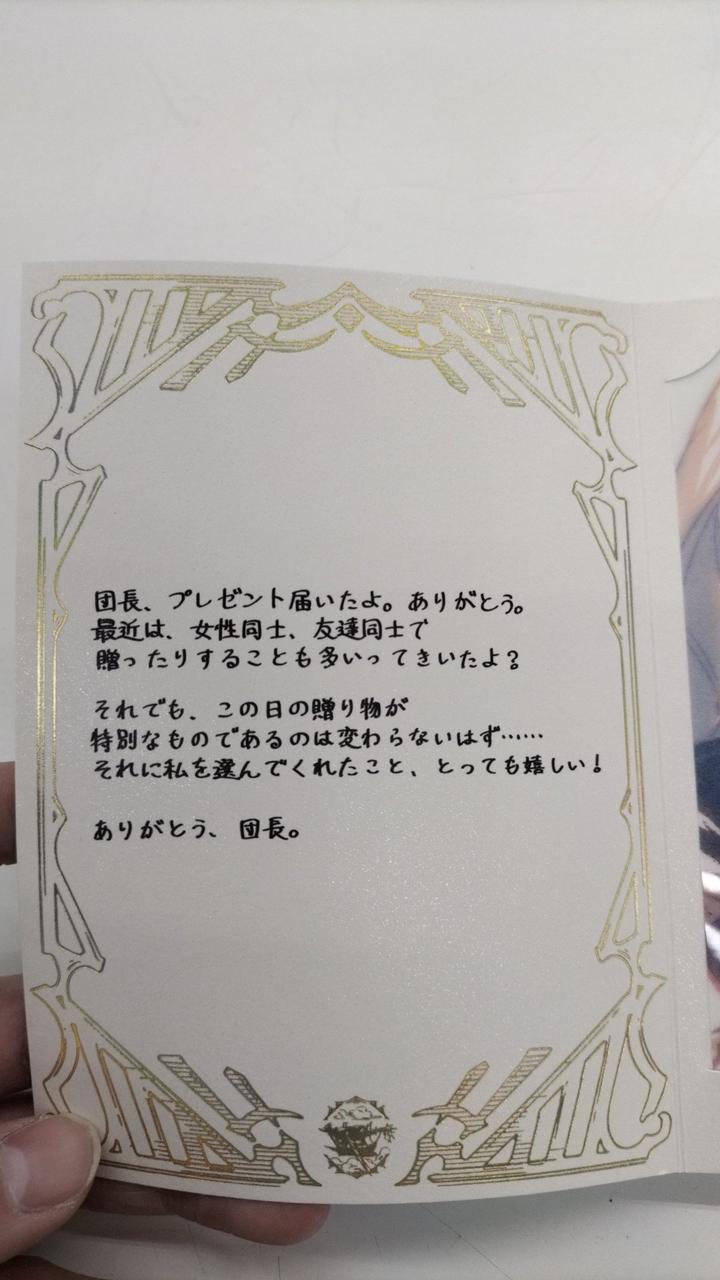 団長、プレゼント届いたよ。ありがとう。
最近は、女性同士、友達同士で
贈ったりすることも多いってきいたよ？
それでも、この日の贈り物が
特別なものであるのは変わらないはず……
それに私を選んでくれたこと、とっても嬉しい！
ありがとう、団長。